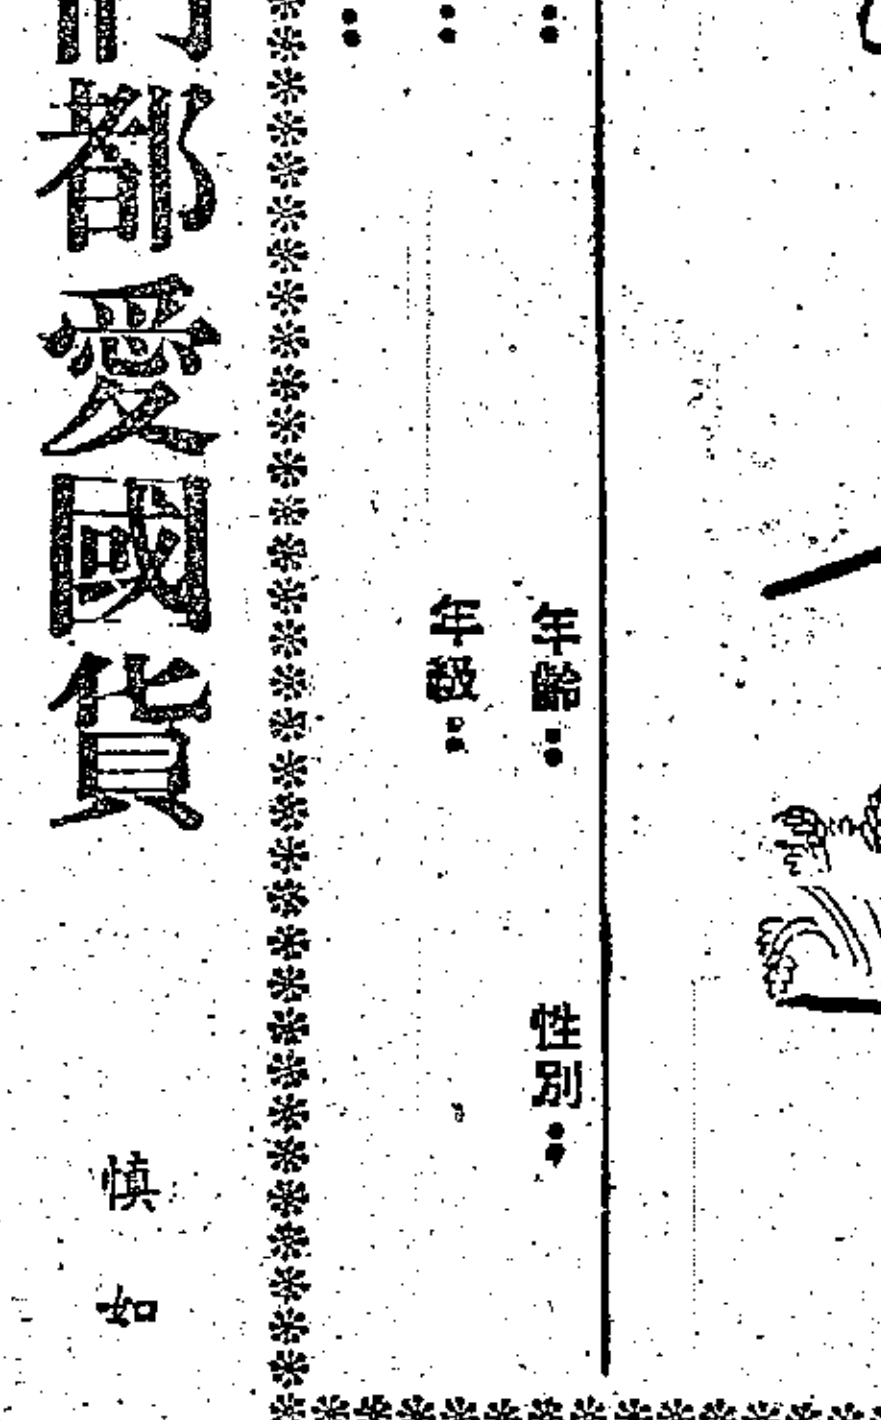 年齡： 性別：
年級：
都愛國貨 慎如